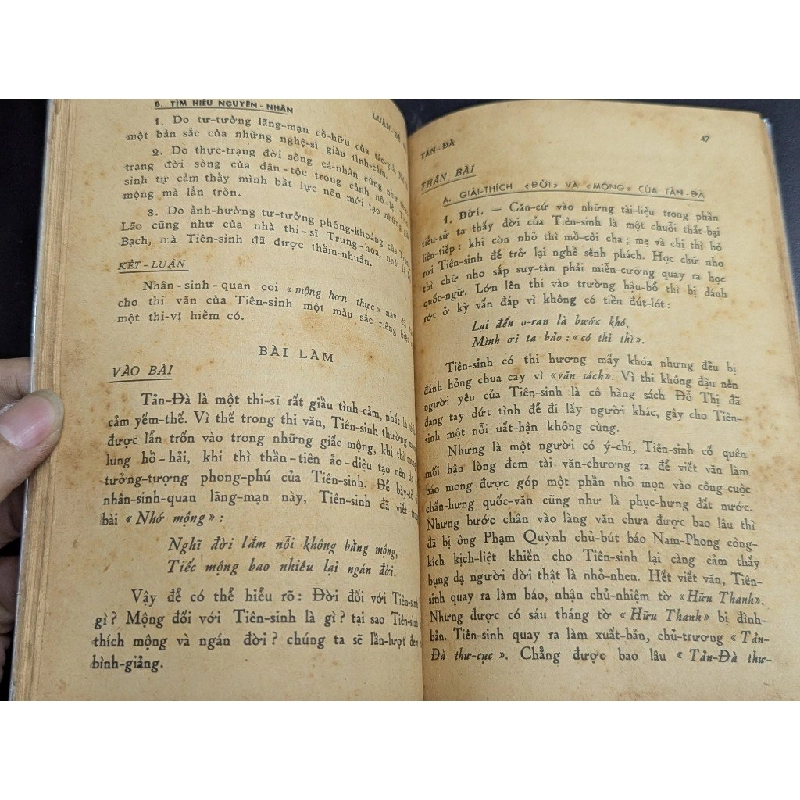 B. TÌM HIỂU NGUYÊN-NHÂN
LUẬN
1. Do tư-tưởng lãng-mạn cố-hữu của
một bản sắc của những nghệ-sĩ giàu tình-cảm.
2. Do thực-trạng đời sống cá-nhân cũng như
trạng đời sống của dân-tộc trong cảnh nô
sinh tự cảm thấy mình bất lực nên mới tạo những
mộng mà lẩn trốn.
3. Do ảnh-hưởng tư-tưởng phóng-khoáng của
Lão cũng như của nhà thi-sĩ Trung-hoa,
Bạch, mà Tiên-sinh đã được thấm-nhuần.
KẾT-LUẬN
Nhân-sinh-quan coi «mộng hơn thực»
cho thi văn của Tiên-sinh một màu sắc riêng
một thi-vị hiếm có.
BÀI LÀM
VÀO BÀI
Tản-Đà là một thi-sĩ rất giầu tình-cảm, nhất là
cảm yếm-thế. Vì thế trong thi văn, Tiên-sinh thường
được lẩn trốn vào trong những giấc mộng, khi thì
lung hồ-hải, khi thì thần-tiên ảo-diệu tạo nên
tưởng-tượng phong-phú của Tiên-sinh. Để
nhân-sinh-quan lãng-mạn này, Tiên-sinh đã viết
bài « Nhớ mộng » :
Nghĩ đời lắm nỗi không bằng mộng,
Tiếc mộng bao nhiêu lại ngán đời.
Vậy để có thể hiểu rõ : Đời đối với Tiên-sinh
gì ? Mộng đối với Tiên-sinh là gì ? tại sao Tiên-sinh
thích mộng và ngán đời ? chúng ta sẽ lần-lượt đem
bình-giảng.
TẢN-ĐÀ 47
THÂN BÀI
A. GIẢI-THÍCH «ĐỜI» VÀ «MỘNG» CỦA TẢN-ĐÀ
1. Đời. — Căn-cứ vào những tài-liệu trong phần
tiểu-sử ta thấy đời của Tiên-sinh là một chuỗi thất-bại
liên-tiếp : khi còn nhỏ thì mồ-côi cha ; mẹ và chị thì bỏ
rơi Tiên-sinh để trở lại nghề sênh phách. Học chữ nho
thì chữ nho sắp suy-tàn phải miễn-cưỡng quay ra học
quốc-ngữ. Lớn lên thi vào trường hậu-bổ thì bị đánh
rớt ở kỳ vấn đáp vì không có tiền đút-lót :
Lui đến o-ran là bước khó,
Mình ơi ta bảo : «có thi thì».
Tiên-sinh có thi hương mấy khóa nhưng đều bị
đánh hỏng chua cay vì «văn sách». Vì thi không đậu nên
người yêu của Tiên-sinh là cô hàng sách Đỗ Thị đã
đang tay dứt tình để đi lấy người khác, gây cho Tiên-
sinh một nỗi uất-hận không cùng.
Nhưng là một người có ý-chí, Tiên-sinh cố quên
mối hận lòng đem tài văn-chương ra để viết văn làm
báo mong được góp một phần nhỏ mọn vào công-cuộc
chấn-hưng quốc-văn cũng như là phục-hưng đất nước.
Nhưng bước chân vào làng văn chưa được bao lâu thì
đã bị ông Phạm Quỳnh chủ-bút báo Nam-Phong công-
kích kịch-liệt khiến cho Tiên-sinh lại càng cảm thấy
bụng dạ người đời thật là nhỏ-nhen. Hết viết văn, Tiên-
sinh quay ra làm báo, nhận chủ-nhiệm tờ « Hữu Thanh».
Nhưng được có sáu tháng tờ « Hữu Thanh » bị đình-
bản. Tiên-sinh quay ra làm xuất-bản, chủ-trương « Tản-
Đà thư-cục ». Chẳng được bao lâu « Tản-Đà thư-